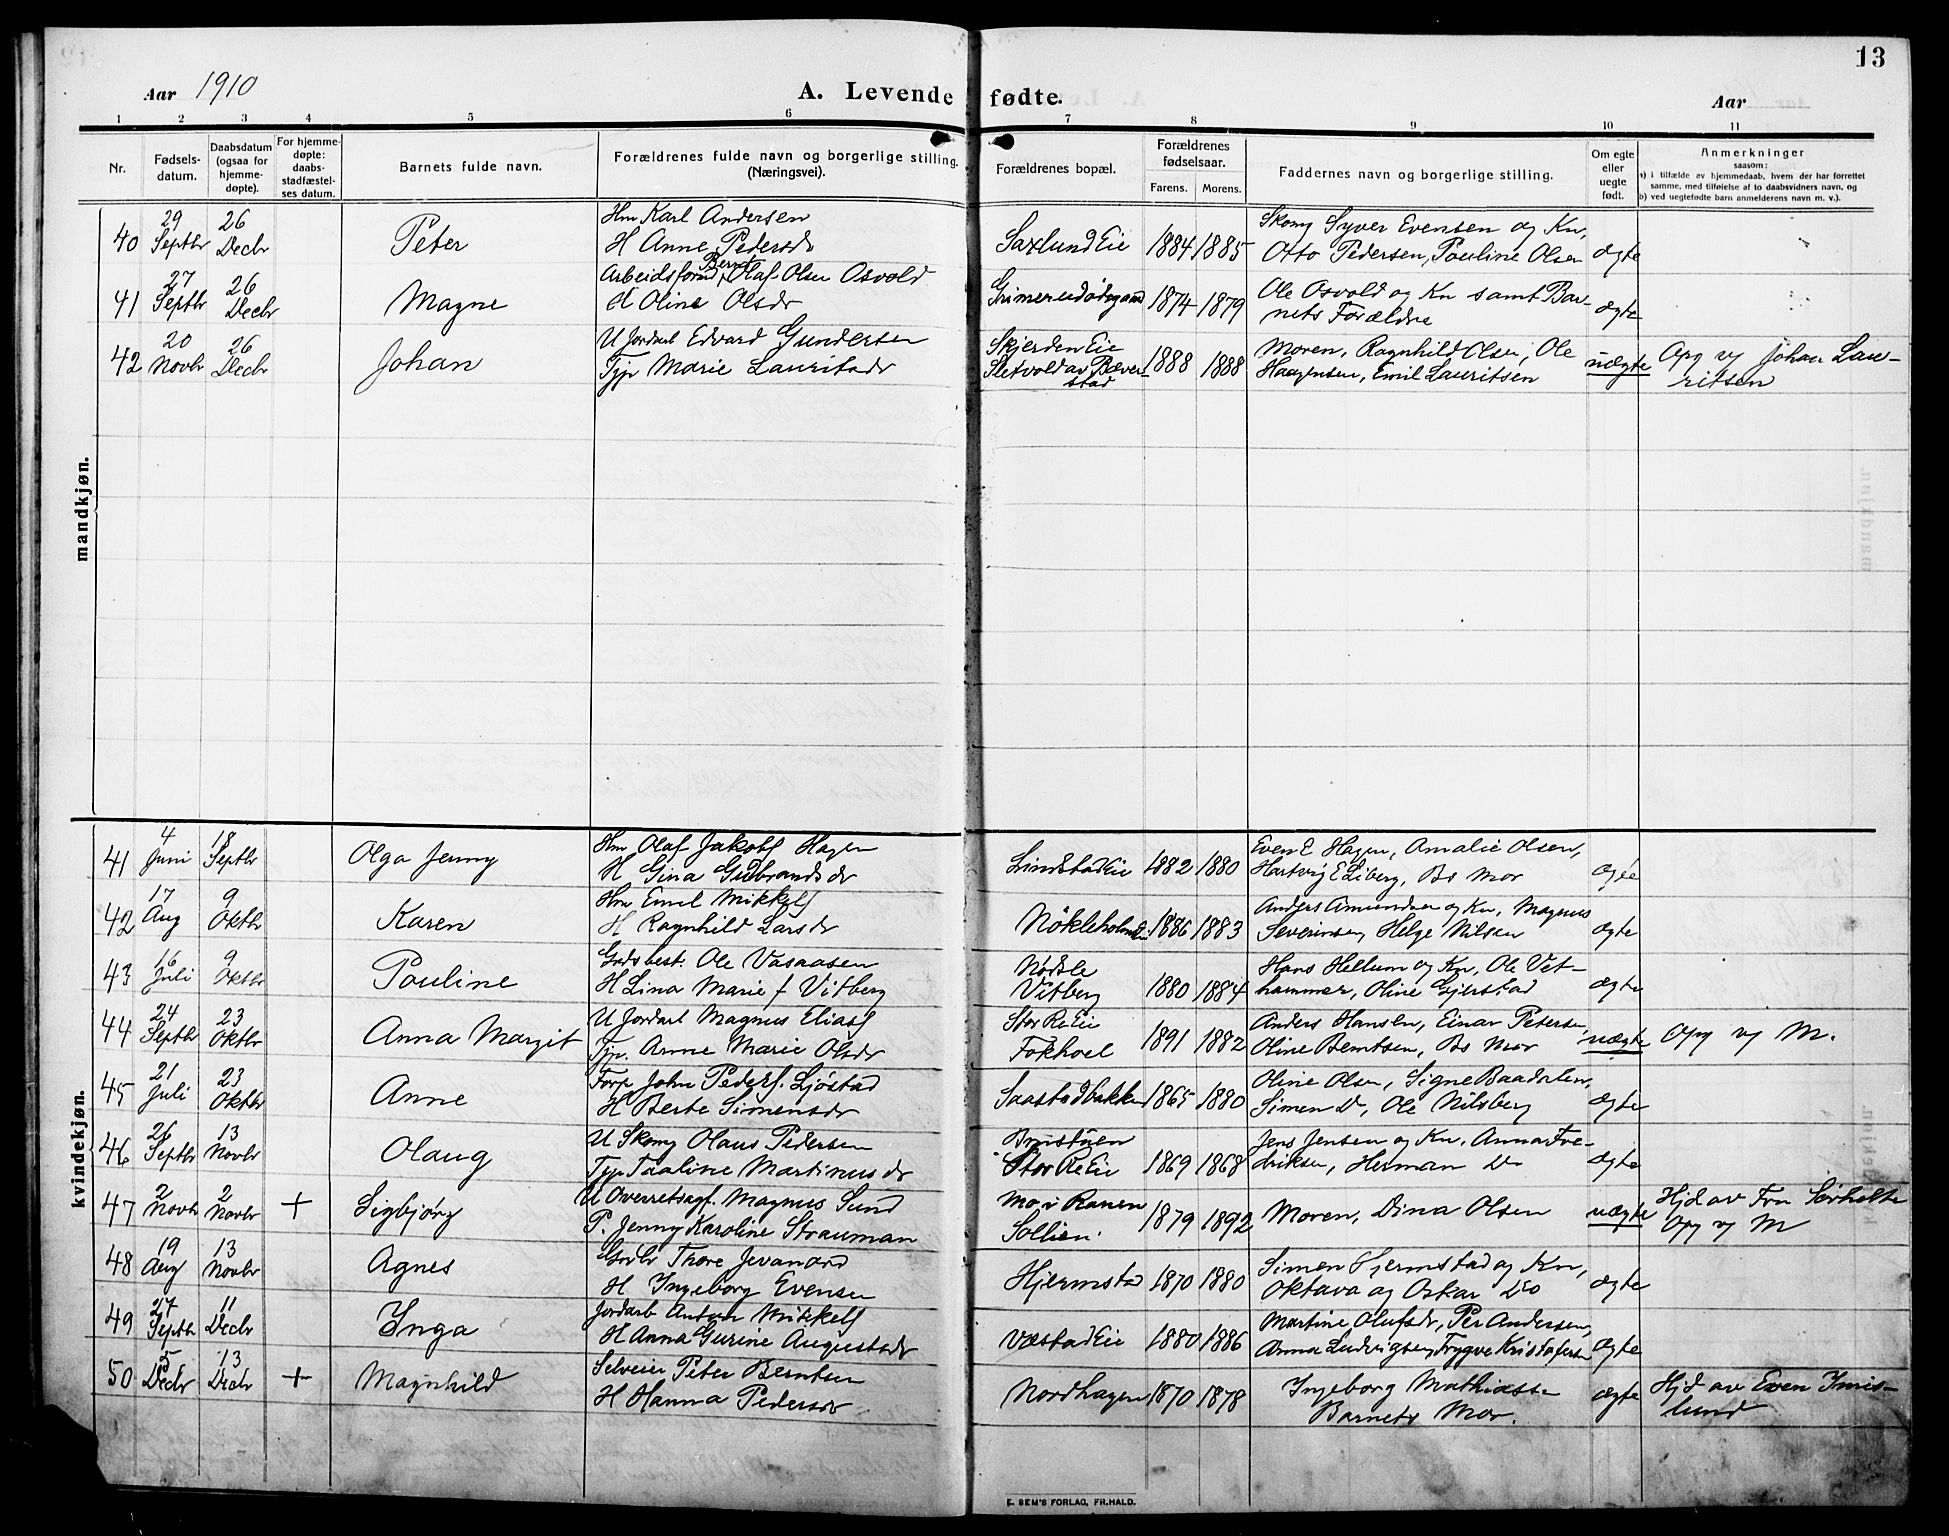 13
Aar 1910
A. Levende fødte.
Aar
1 2 3 4 5 6 7 8 9 10 11
Nr.
Fødsels-
datum.
Daabsdatum
(ogsaa for
hjemme-
døpte).
For hjemme-
døpte:
daabs-
stadfæstel-
ses datum.
Barnets fulde navn.
Forældrenes fulde navn og borgerlige stilling.
(Næringsvei).
Forældrenes bopæl.
Forældrenes
fødselsaar.
Farens. Morens.
Faddernes navn og borgerlige stilling.
Om egte
eller
uegte
født.
Anmerkninger
saasom:
a) i tilfælde av hjemmedaab, hvem der har forrettet
samme, med tilføielse af to daabsvidners navn, og
b) ved uegtefødte barn anmelderens navn m. v.).
mandkjøn.
40 29 Septbr 26 Decbr Peter
Hm Karl Andersen
H Anne Pedersdr
Saxlund Eie 1884 1885
Skomg Syver Evensen og Kn,
Otto Pedersen, Pauline Olsen
ægte
41 27 Septbr 26 Decbr Magne
Arbeidsform Bernt Olaf Olsen Osvold
H Oline Olsdr
Grimerudødegaard 1874 1879
Ole Osvold og Kn samt Bar-
nets Forældre
ægte
42 20 Novbr 26 Decbr Johan
U Jordarb Edvard Gundersen
Tjp Marie Lauritsdr
Skjerden Eie
Sletvold av Bæver-
stad
1888 1888
Moren, Ragnhild Olsen, Ole
Haagensen, Emil Lauritsen
uægte
Opg v Johan Lau-
ritsen
kvindekjøn.
41 4 Juni 18 Septbr Olga Jenny
Hm Olaf Jakobs Hagen
H Gina Gudbrandsdr
Lindstad Eie 1882 1880
Even E Hagen, Amalie Olsen,
Hartvig E Liberg, Bs Mor
ægte
42 17 Aug 9 Oktbr Karen
Hm Emil Mikkels
H Ragnhild Larsdr
Nökleholm 1886 1883
Anders Amundsen og Kn, Magnus
Severinsen, Helge Nilsen
ægte
43 16 Juli 9 Oktbr Pauline
Grdsbest. Ole Vasaasen
H Lina Marie f Vitberg
Nödsle
Vitberg
1880 1884
Hans Hellum og Kn, Ole Vet-
hammer, Oline Gjerstad
ægte
44 24 Septbr 23 Oktbr Anna Margit
U Jordarb Magnus Elias
Tjp. Anne Marie Olsdr
Stor Re Eie
Fokhoel
1891 1882
Anders Hansen, Einar Petersen,
Oline Berntsen, Bs Mor
uægte
Opg v M.
45 21 Juli 23 Oktbr Anne
Forp John Peders. Ljöstad
H Berte Simensdr
Saastadbakken 1865 1880
Oline Olsen, Signe Baadalen,
Simen Do, Ole Nilsberg
ægte
46 26 Septbr 13 Novbr Olaug
U Skomg Olaus Pedersen
Tjp Pauline Martinusdr
Stor Re Eie
1869 1868
Jens Jensen og Kn, Anna Fre-
driksen, Herman Do
ægte
47 2 Novbr 2 Novbr + Sigbjørg
U Overretssagf. Magnus Sund
P. Jenny Karoline Strauman
Mo i Ranen
Sollien.
1879 1892
Moren, Dina Olsen
uægte
Hjd av Fru Sörholte
Opg v M
48 19 Aug 13 Novbr Agnes
Grdbr Thore Jevanord
H Ingeborg Evensen
Hjermstad 1870 1880
Simen Hjermstad og Kn,
Oktava og Oskar Do
ægte
49 27 Septbr 11 Decbr Inga
Jordarb Anton Mikkels
H Anna Gurine Augustsdr
Væstad Eie 1880 1886
Martine Olufsdr, Per Andersen,
Anna Ludvigsen, Trygve Kristofersen
ægte
50 5 Decbr 13 Decbr + Magnhild
Selveier Peter Berntsen
H Hanna Pedersdr
Nordhagen 1870 1878
Ingeborg Mathiassen
Barnets Mor.
ægte
Hjd av Even Imis-
lund
E. SEM'S FORLAG, FR.HALD.